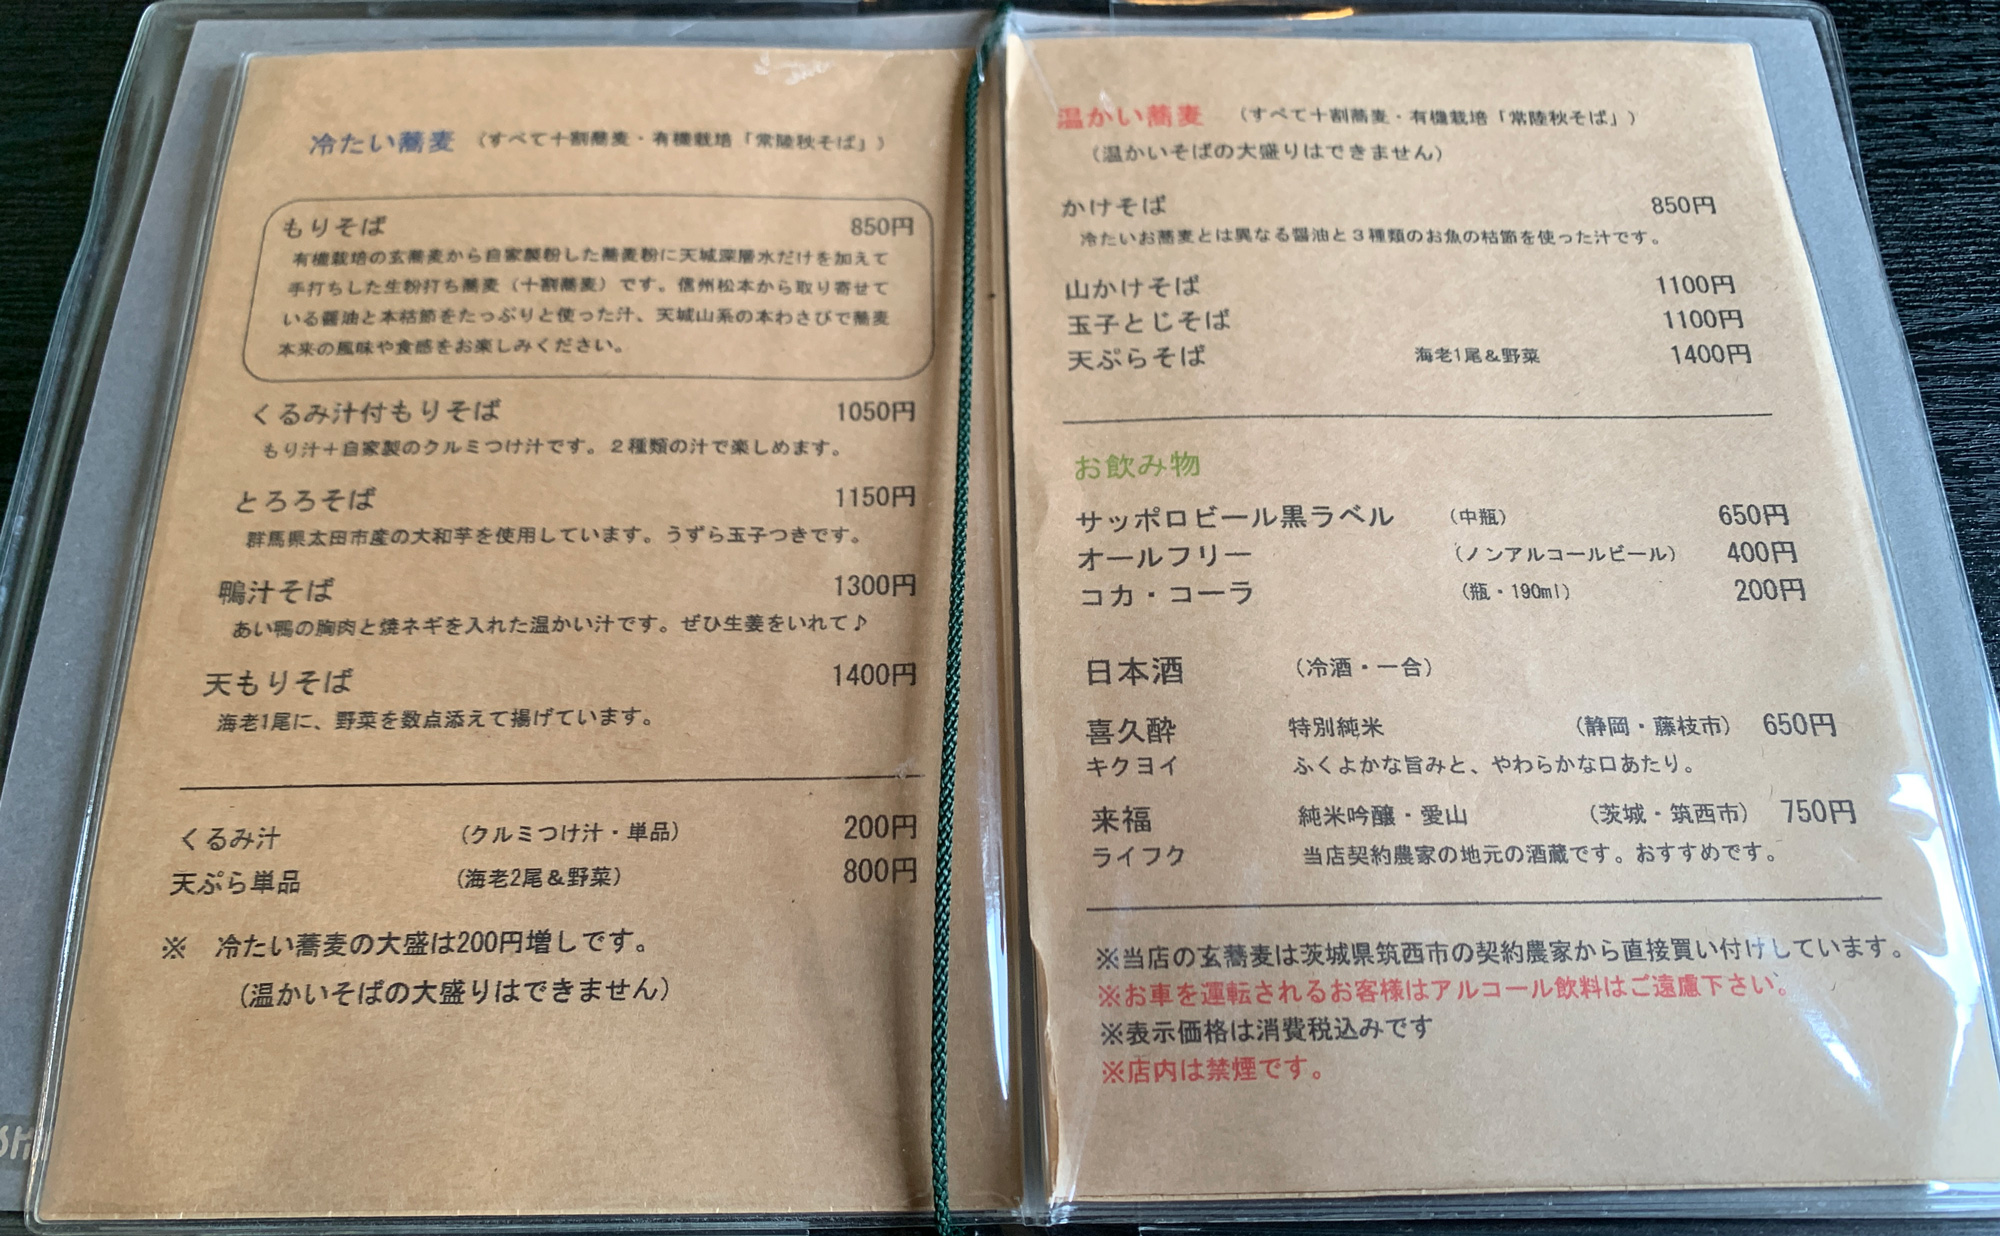 冷たい蕎麦 (すべて十割蕎麦・有機栽培「常陸秋そば」)
もりそば 850円
有機栽培の玄蕎麦から自家製粉した蕎麦粉に天城深層水だけを加えて
手打ちした生粉打ち蕎麦(十割蕎麦)です。信州松本から取り寄せて
いる醤油と本枯節をたっぷりと使った汁、天城山系の本わさびで蕎麦
本来の風味や食感をお楽しみください。
くるみ汁付もりそば 1050円
もり汁+自家製のクルミつけ汁です。2種類の汁で楽しめます。
とろろそば 1150円
群馬県太田市産の大和芋を使用しています。うずら玉子つきです。
鴨汁そば 1300円
あい鴨の胸肉と焼ネギを入れた温かい汁です。ぜひ生姜をいれて♪
天もりそば 1400円
海老1尾に、野菜を数点添えて揚げています。
くるみ汁 (クルミつけ汁・単品) 200円
天ぷら単品 (海老2尾&野菜) 800円
※ 冷たい蕎麦の大盛は200円増しです。
(温かいそばの大盛りはできません)
温かい蕎麦 (すべて十割蕎麦・有機栽培「常陸秋そば」)
(温かいそばの大盛りはできません)
かけそば 850円
冷たいお蕎麦とは異なる醤油と3種類のお魚の枯節を使った汁です。
山かけそば 1100円
玉子とじそば 1100円
天ぷらそば 海老1尾&野菜 1400円
お飲み物
サッポロビール黒ラベル (中瓶) 650円
オールフリー (ノンアルコールビール) 400円
コカ・コーラ (瓶・190ml) 200円
日本酒 (冷酒・一合)
喜久酔 特別純米 (静岡・藤枝市) 650円
キクヨイ ふくよかな旨みと、やわらかな口あたり。
来福 純米吟醸・愛山 (茨城・筑西市) 750円
ライフク 当店契約農家の地元の酒蔵です。おすすめです。
※当店の玄蕎麦は茨城県筑西市の契約農家から直接買い付けしています。
※お車を運転されるお客様はアルコール飲料はご遠慮下さい。
※表示価格は消費税込みです
※店内は禁煙です。